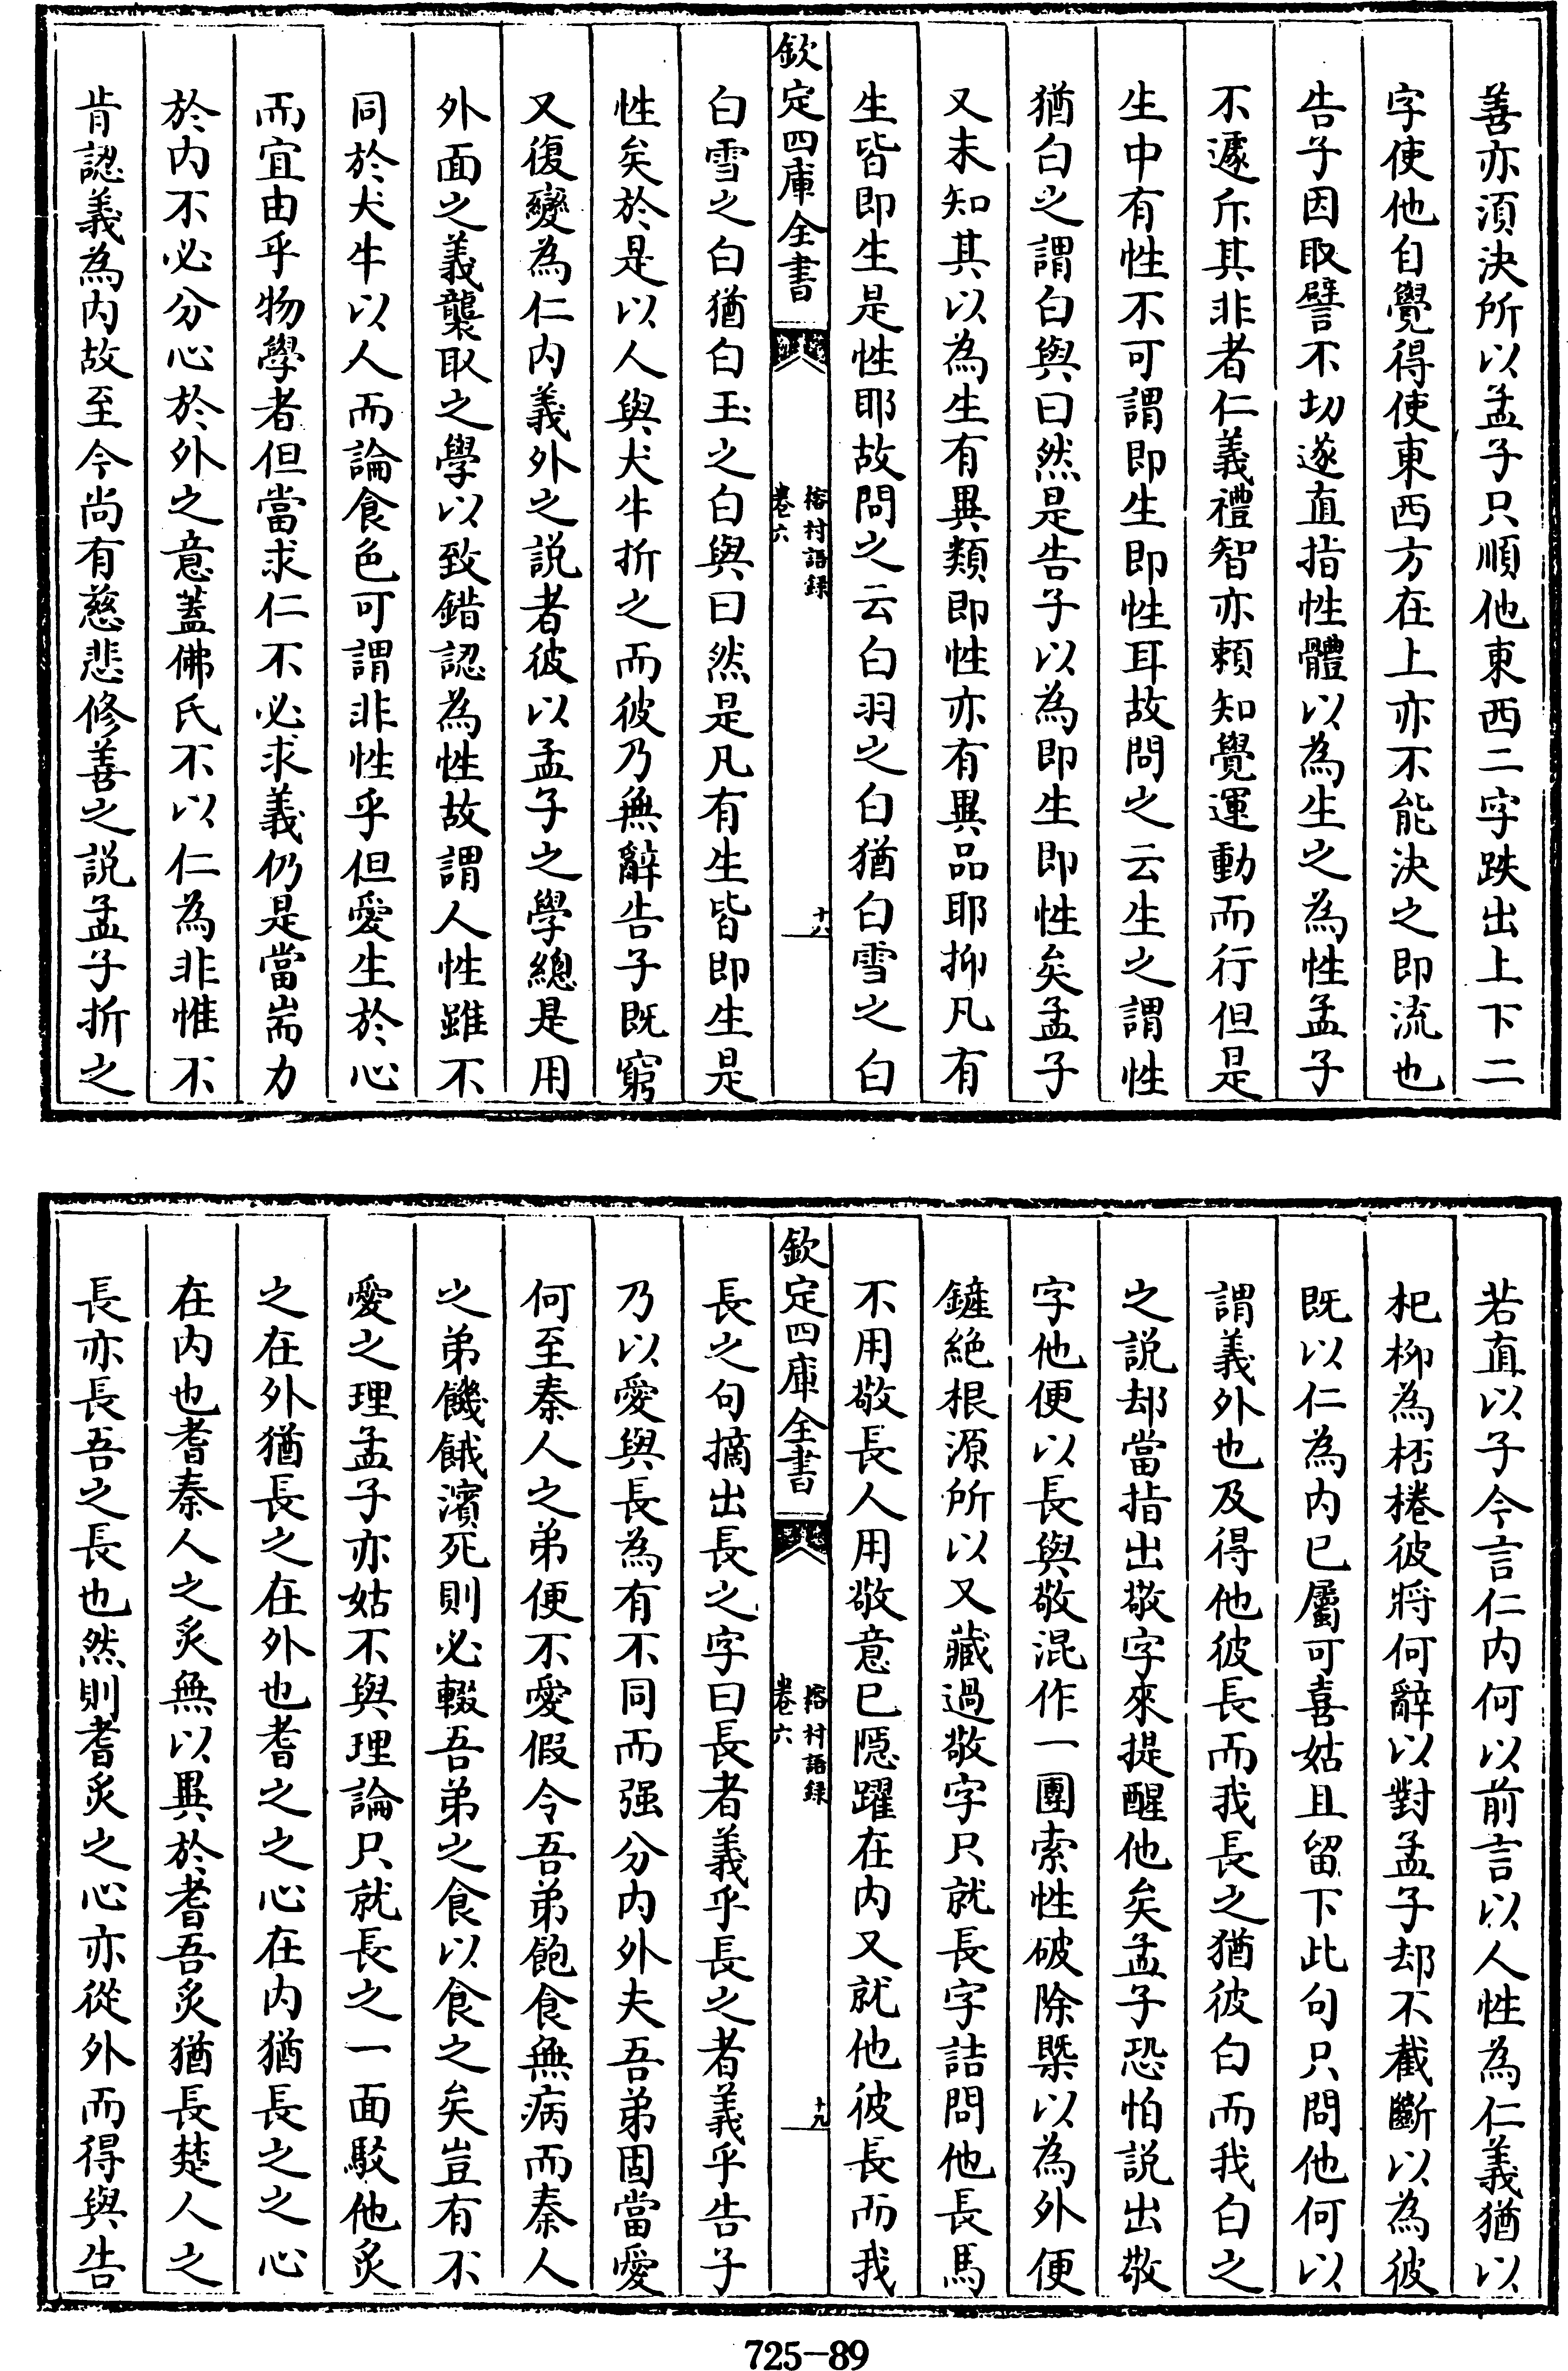 善亦須決所以孟子只順他東西二字跌出上下二
字使他自覺得使東西方在上亦不能決之即流也
告子因取譬不切遂直指性體以為生之為性孟子
不遽斥其非者仁義禮智亦賴知覺運動而行但是
生中有性不可謂即生即性耳故問之云生之謂性
猶白之謂白與曰然是告子以為即生即性矣孟子
又未知其以為生有異類即性亦有異品耶抑凡有
生皆即生是性耶故問之云白羽之白猶白雪之白
欽定四庫全書
榕村語録
卷六
十八
白雪之白猶白玉之白與曰然是凡有生皆即生是
性矣於是以人與犬牛折之而彼乃無辭告子既窮
又復變為仁內義外之說者彼以孟子之學總是用
外面之義襲取之學以致錯認為性故謂人性雖不
同於犬牛以人而論食色可謂非性乎但愛生於心
而宜由乎物學者但當求仁不必求義仍是當耑力
於內不必分心於外之意蓋佛氏不以仁為非惟不
肯認義為內故至今尚有慈悲修善之說孟子折之
若直以子今言仁內何以前言以人性為仁義猶以
杞柳為桮棬彼將何辭以對孟子却不截斷以為彼
既以仁為內已屬可喜姑且留下此句只問他何以
謂義外也及得他彼長而我長之猶彼白而我白之
之說却當指出敬字來提醒他矣孟子恐怕說出敬
字他便以長與敬混作一團索性破除槩以為外便
鏟絶根源所以又藏過敬字只就長字詰問他長馬
不用敬長人用敬意已隱躍在內又就他彼長而我
欽定四庫全書
榕村語録
卷六
十九
長之句摘出長之字曰長者義乎長之者義乎告子
乃以愛與長為有不同而强分內外夫吾弟固當愛
何至秦人之弟便不愛假令吾弟飽食無病而秦人
之弟饑餓濱死則必輟吾弟之食以食之矣豈有不
愛之理孟子亦姑不與理論只就長之一面駁他炙
之在外猶長之在外也耆之之心在內猶長之之心
在內也耆秦人之炙無以異於耆吾炙猶長楚人之
長亦長吾之長也然則耆炙之心亦從外而得與告
725-89